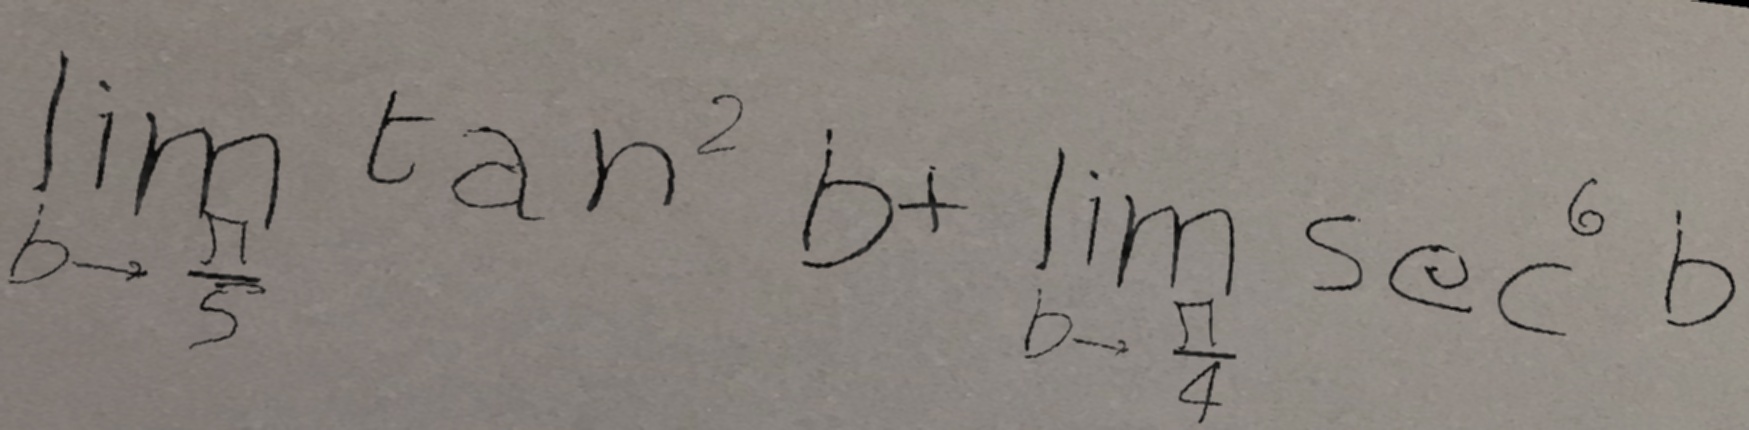 \lim_{b \to \frac{\pi}{5}} \tan^2 b + \lim_{b \to \frac{\pi}{4}} \sec^6 b